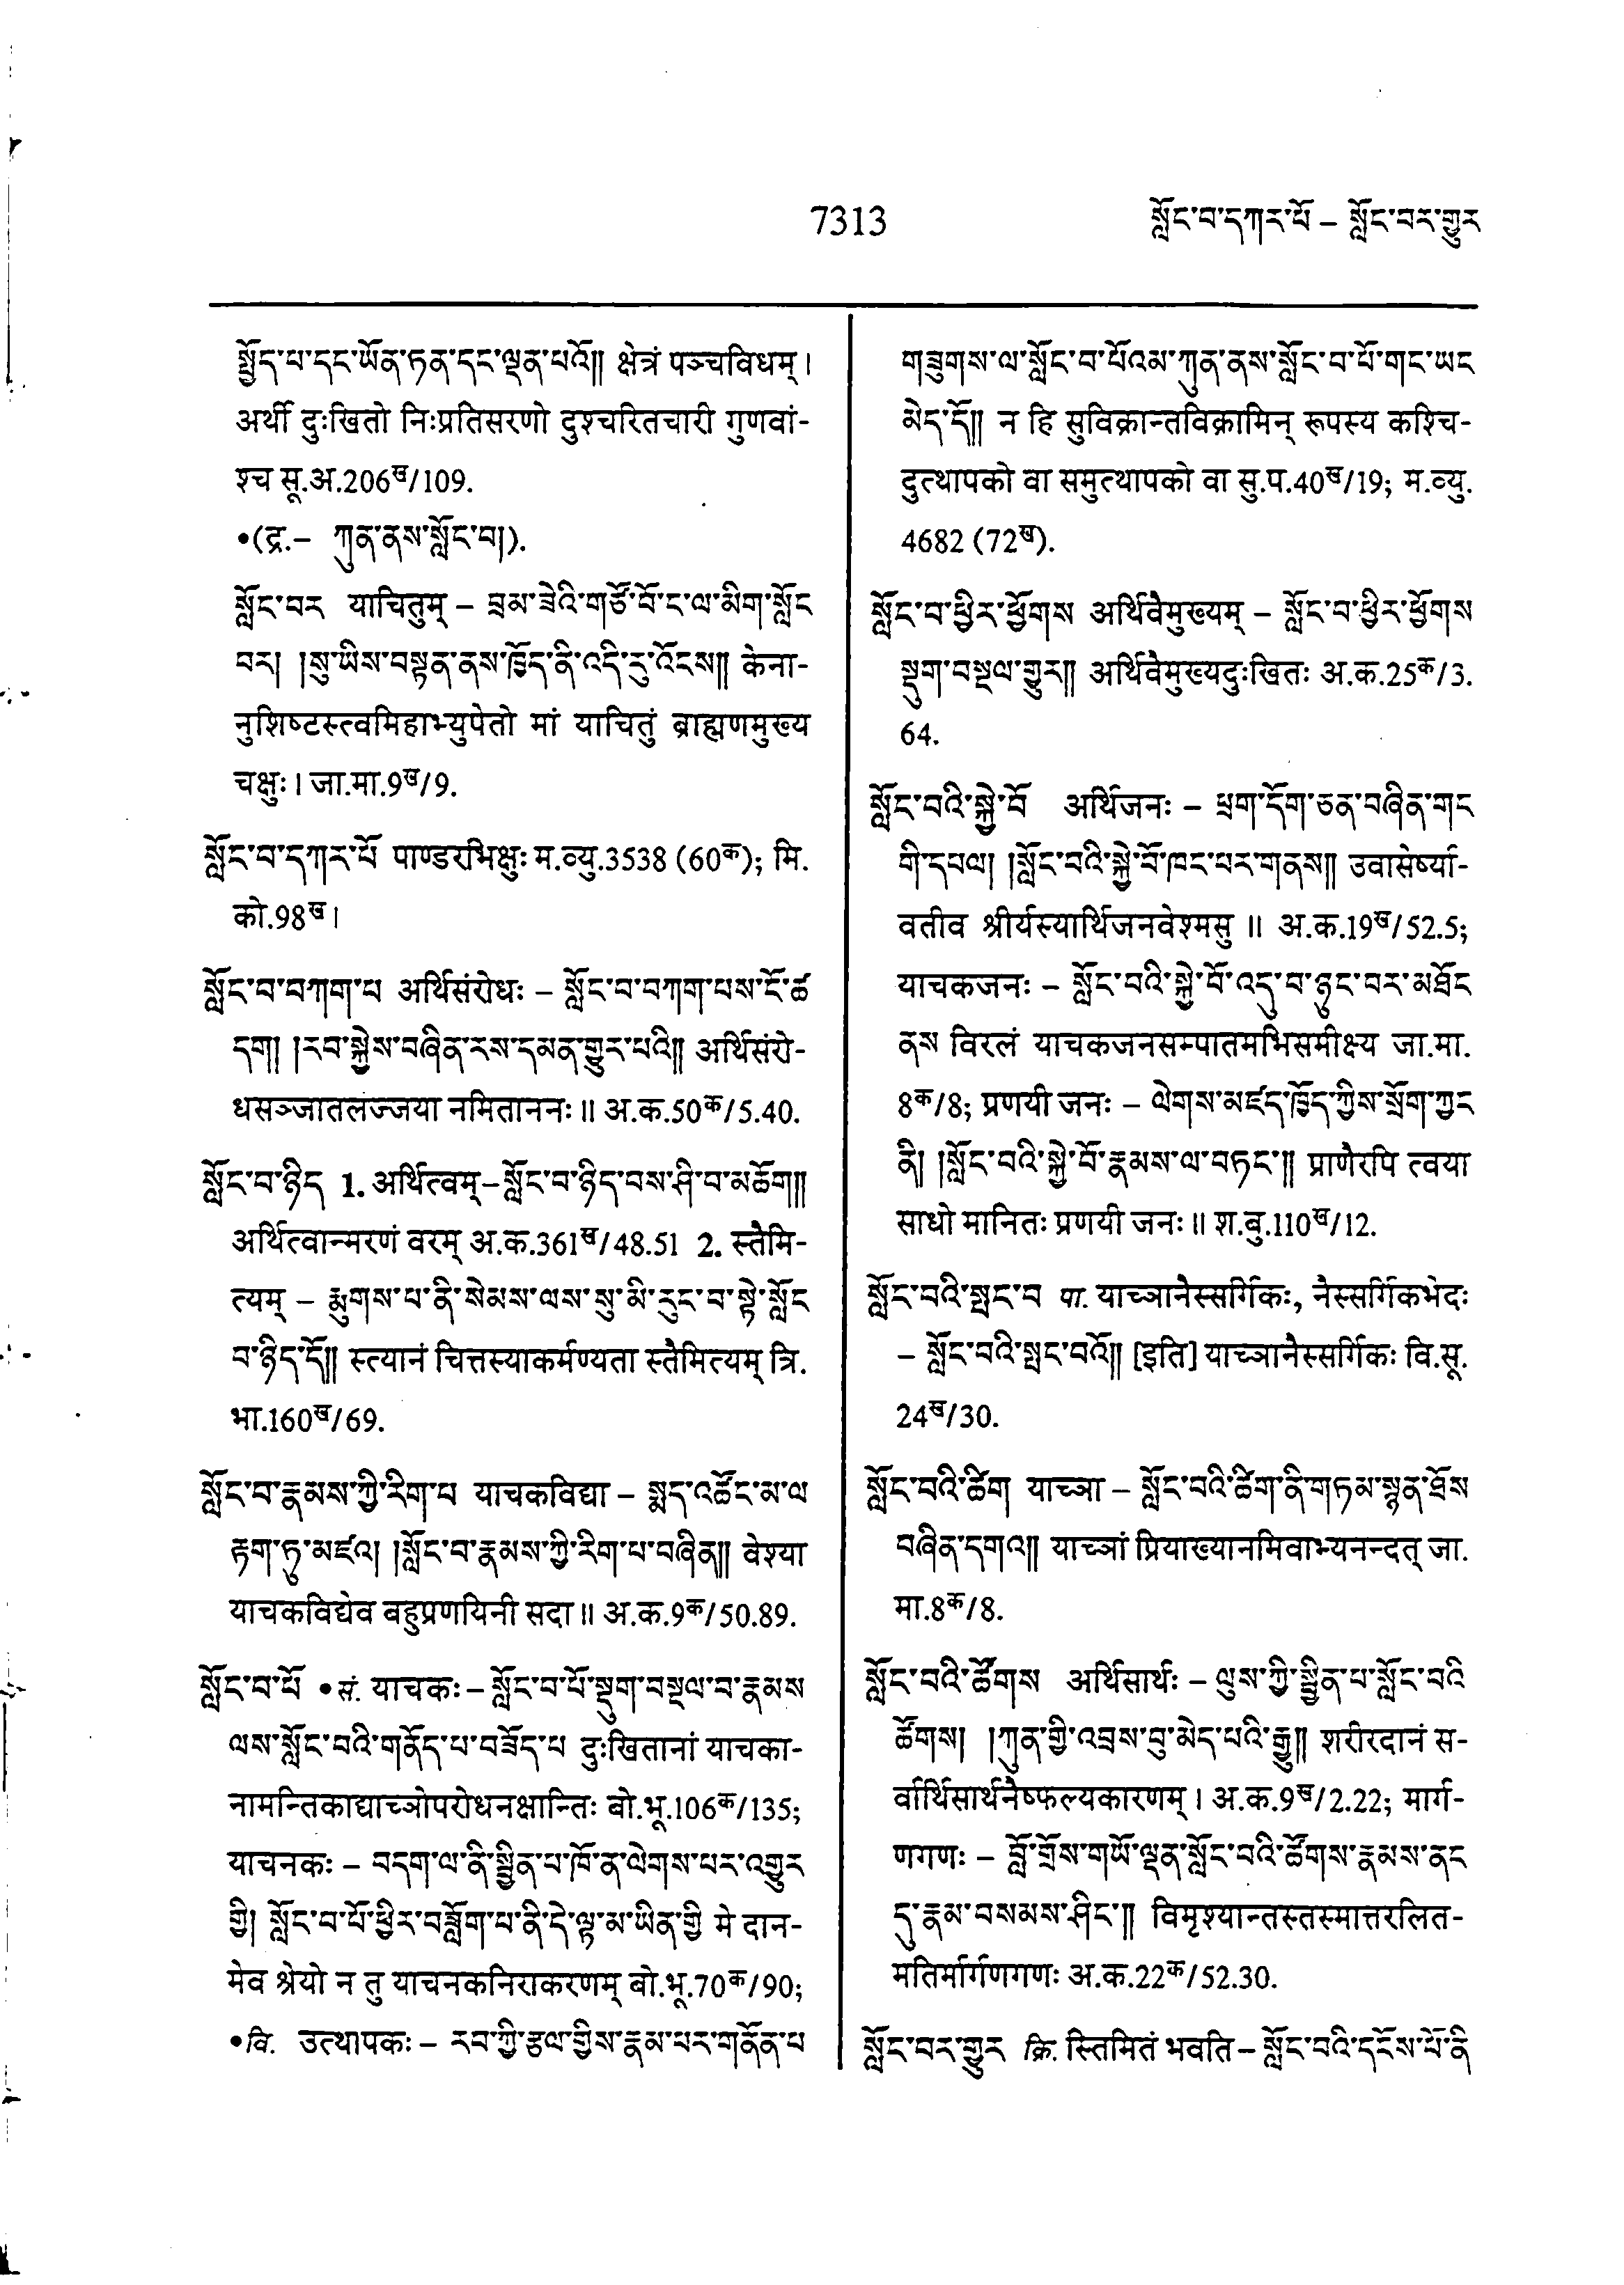 7313
སློང་བ་དཀར་པོ – སློང་བར་གྱུར
སྤྱོད་པ་དང་ཡོན་ཏན་དང་ལྡན་པའོ།། क्षेत्रं पञ्चविधम् ।
अर्थी दुःखितो निःप्रतिसरणो दुश्चरितचारी गुणवां-
श्च सू.अ.206ख/109.
•(द्र.– ཀུན་ནས་སློང་བ།).
སློང་བར याचितुम् – བྲམ་ཟེའི་གཙོ་བོ་ང་ལ་མིག་སློང
བར། །སུ་ཡིས་བསྟན་ནས་ཁྱོད་ནི་འདི་རུ་འོངས།། केना-
नुशिष्टस्त्वमिहाभ्युपेतो मां याचितुं ब्राह्मणमुख्य
चक्षुः । जा.मा.9ख/9.
སློང་བ་དཀར་པོ पाण्डरभिक्षुः म.व्यु.3538 (60क); मि.
को.98ख ।
སློང་བ་བཀག་པ अर्थिसंरोधः – སློང་བ་བཀག་པས་ངོ་ཚ
དག། །རབ་སྐྱེས་བཞིན་རས་དམན་གྱུར་པའི།། अर्थिसंरो-
धसञ्जातलज्जया नमिताननः ॥ अ.क.50क/5.40.
སློང་བ་ཉིད 1. अर्थित्वम्–སློང་བ་ཉིད་བས་ཤི་བ་མཆོག།།
अर्थित्वान्मरणं वरम् अ.क.361ख/48.51 2. स्तैमि-
त्यम् – རྨུགས་པ་ནི་སེམས་ལས་སུ་མི་རུང་བ་སྟེ་སློང
བ་ཉིད་དོ།། स्त्यानं चित्तस्याकर्मण्यता स्तैमित्यम् त्रि.
भा.160ख/69.
སློང་བ་རྣམས་ཀྱི་རིག་པ याचकविद्या – སྨད་འཚོང་མ་ལ
རྟག་ཏུ་མཛའ། །སློང་བ་རྣམས་ཀྱི་རིག་པ་བཞིན།། वेश्या
याचकविद्येव बहुप्रणयिनी सदा ॥ अ.क.9क/50.89.
སློང་བ་པོ •सं. याचकः – སློང་བ་པོ་སྡུག་བསྔལ་བ་རྣམས
ལས་སློང་བའི་གནོད་པ་བཟོད་པ दुःखितानां याचका-
नामन्तिकाद्याच्ञोपरोधनक्षान्तिः बो.भू.106क/135;
याचनकः – བདག་ལ་ནི་སྦྱིན་པ་ཁོ་ན་ལེགས་པར་འགྱུར
གྱི། སློང་བ་པོ་ཕྱིར་བཟློག་པ་ནི་དེ་ལྟ་མ་ཡིན་གྱི मे दान-
मेव श्रेयो न तु याचनकनिराकरणम् बो.भू.70क/90;
•वि. उत्थापकः – རབ་ཀྱི་རྩལ་གྱིས་རྣམ་པར་གནོན་པ
གཟུགས་ལ་སློང་བ་པོའམ་ཀུན་ནས་སློང་བ་པོ་གང་ཡང
མེད་དོ།། न हि सुविक्रान्तविक्रामिन् रूपस्य कश्चि-
दुत्थापको वा समुत्थापको वा सु.प.40ख/19; म.व्यु.
4682 (72ख).
སློང་བ་ཕྱིར་ཕྱོགས अर्थिवैमुख्यम् – སློང་བ་ཕྱིར་ཕྱོགས
སྡུག་བསྔལ་གྱུར།། अर्थिवैमुख्यदुःखितः अ.क.25क/3.
64.
སློང་བའི་སྐྱེ་བོ अर्थिजनः – ཕྲག་དོག་ཅན་བཞིན་གང
གི་དཔལ། །སློང་བའི་སྐྱེ་བོ་ཁང་པར་གནས།། उवासेर्ष्या-
वतीव श्रीर्यस्यार्थिजनवेश्मसु ॥ अ.क.19ख/52.5;
याचकजनः – སློང་བའི་སྐྱེ་བོ་འདུ་བ་ཉུང་བར་མཐོང
ནས विरलं याचकजनसम्पातमभिसमीक्ष्य जा.मा.
8क/8; प्रणयी जनः – ལེགས་མཛད་ཁྱོད་ཀྱིས་སྲོག་ཀྱང
ནི། །སློང་བའི་སྐྱེ་བོ་རྣམས་ལ་བཏང་།། प्राणैरपि त्वया
साधो मानितः प्रणयी जनः ॥ श.बु.110ख/12.
སློང་བའི་སྤང་བ पा. याच्ञानैस्सर्गिकः, नैस्सर्गिकभेदः
– སློང་བའི་སྤང་བའོ།། [इति] याच्ञानैस्सर्गिकः वि.सू.
24ख/30.
སློང་བའི་ཚིག याच्ञा – སློང་བའི་ཚིག་ནི་གཏམ་སྙན་ཐོས
བཞིན་དགའ།། याच्ञां प्रियाख्यानमिवाभ्यनन्दत् जा.
मा.8क/8.
སློང་བའི་ཚོགས अर्थिसार्थः – ལུས་ཀྱི་སྦྱིན་པ་སློང་བའི
ཚོགས། །ཀུན་གྱི་འབྲས་བུ་མེད་པའི་རྒྱུ།། शरीरदानं स-
र्वार्थिसार्थनैष्फल्यकारणम् । अ.क.9ख/2.22; मार्ग-
णगणः – བློ་གྲོས་གཡོ་ལྡན་སློང་བའི་ཚོགས་རྣམས་ནང
དུ་རྣམ་བསམས་ཤིང་།། विमृश्यान्तस्तस्मात्तरलित-
मतिर्मार्गणगणः अ.क.22क/52.30.
སློང་བར་གྱུར क्रि. स्तिमितं भवति – སློང་བའི་དངོས་པོ་ནི